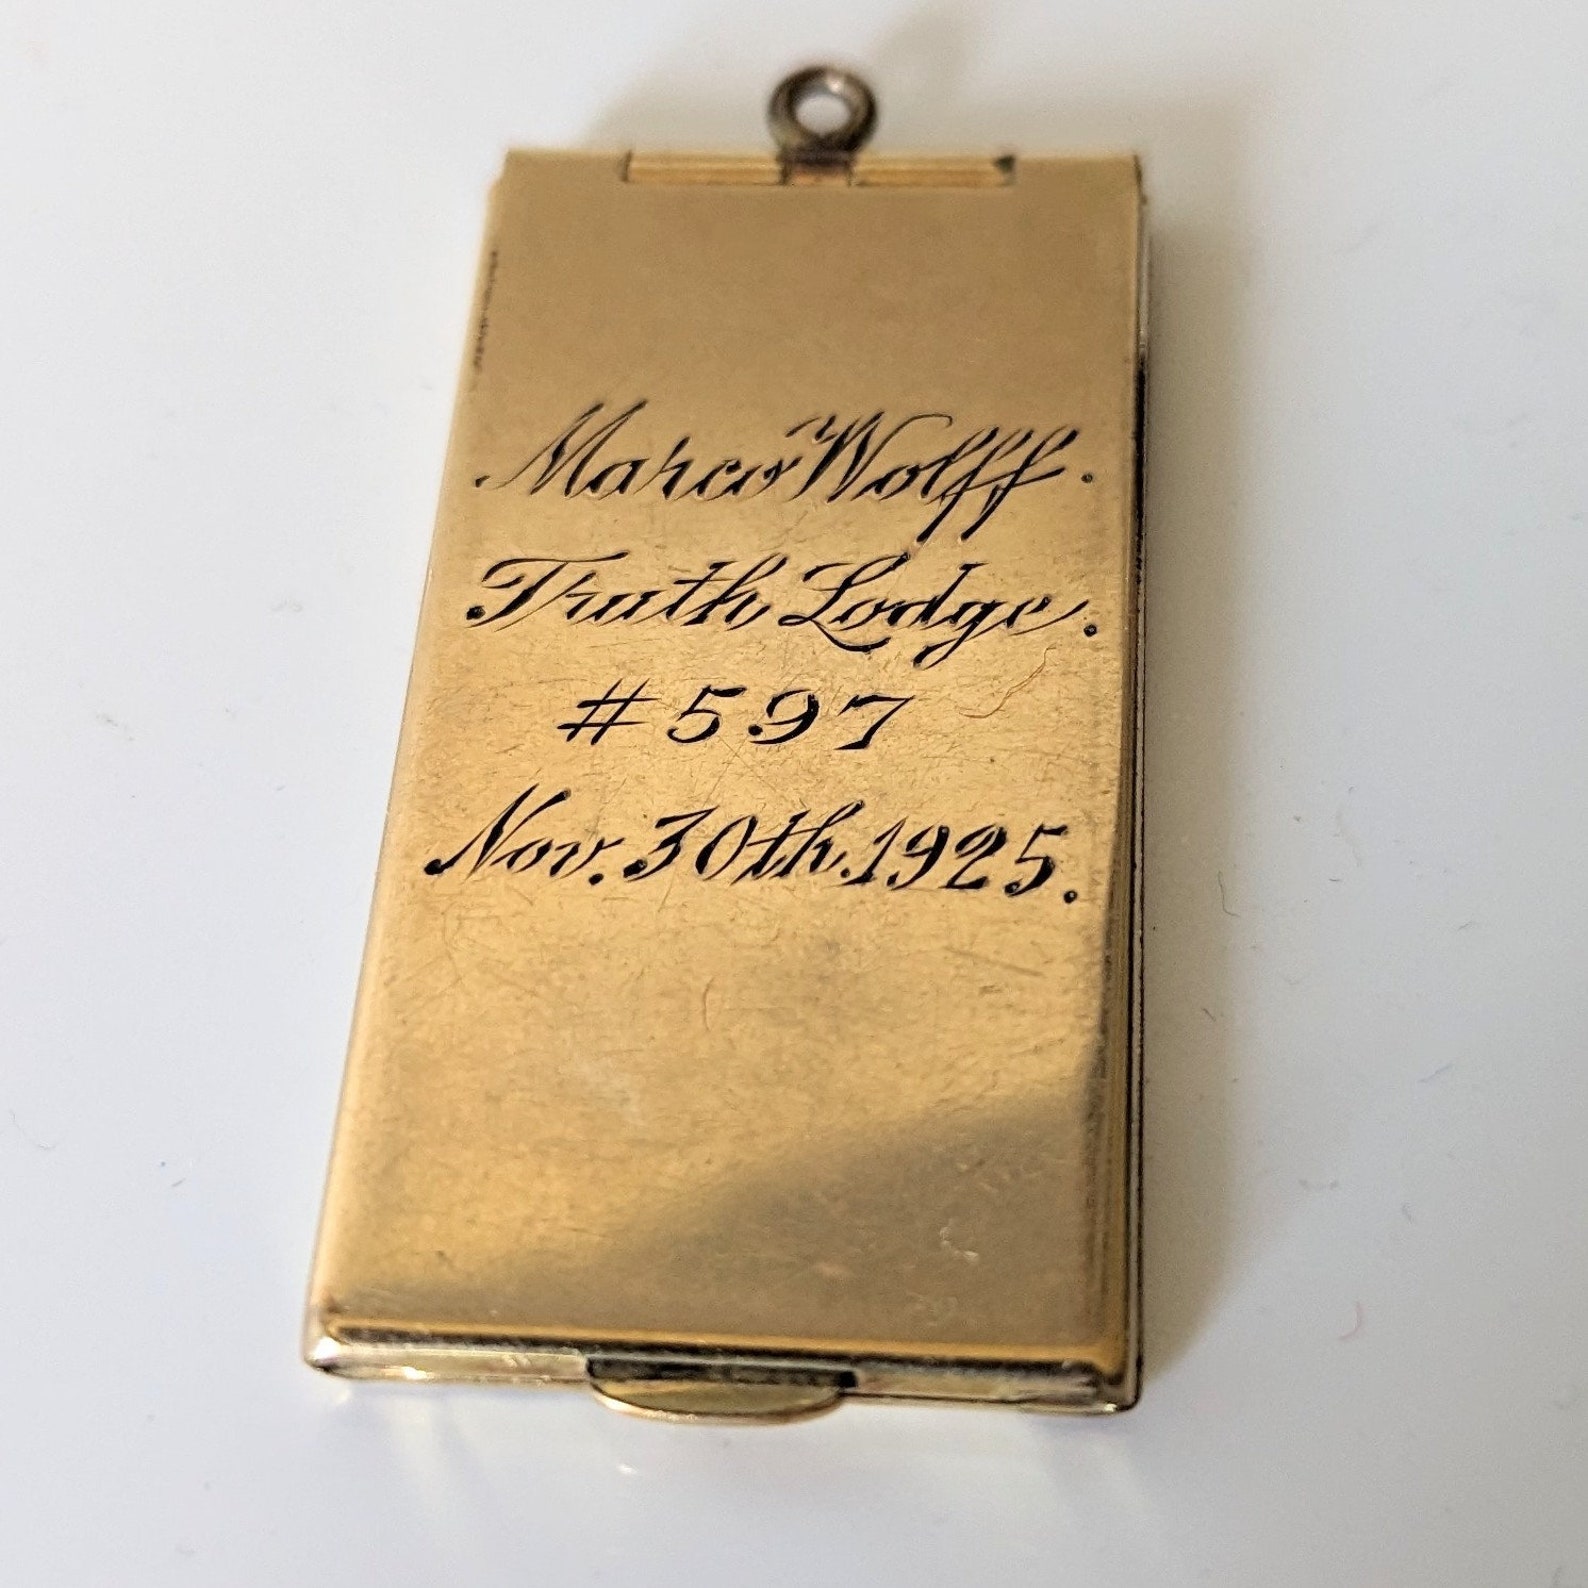 Marco Wolff.
Truth Lodge.
#597
Nov. 30th. 1925.